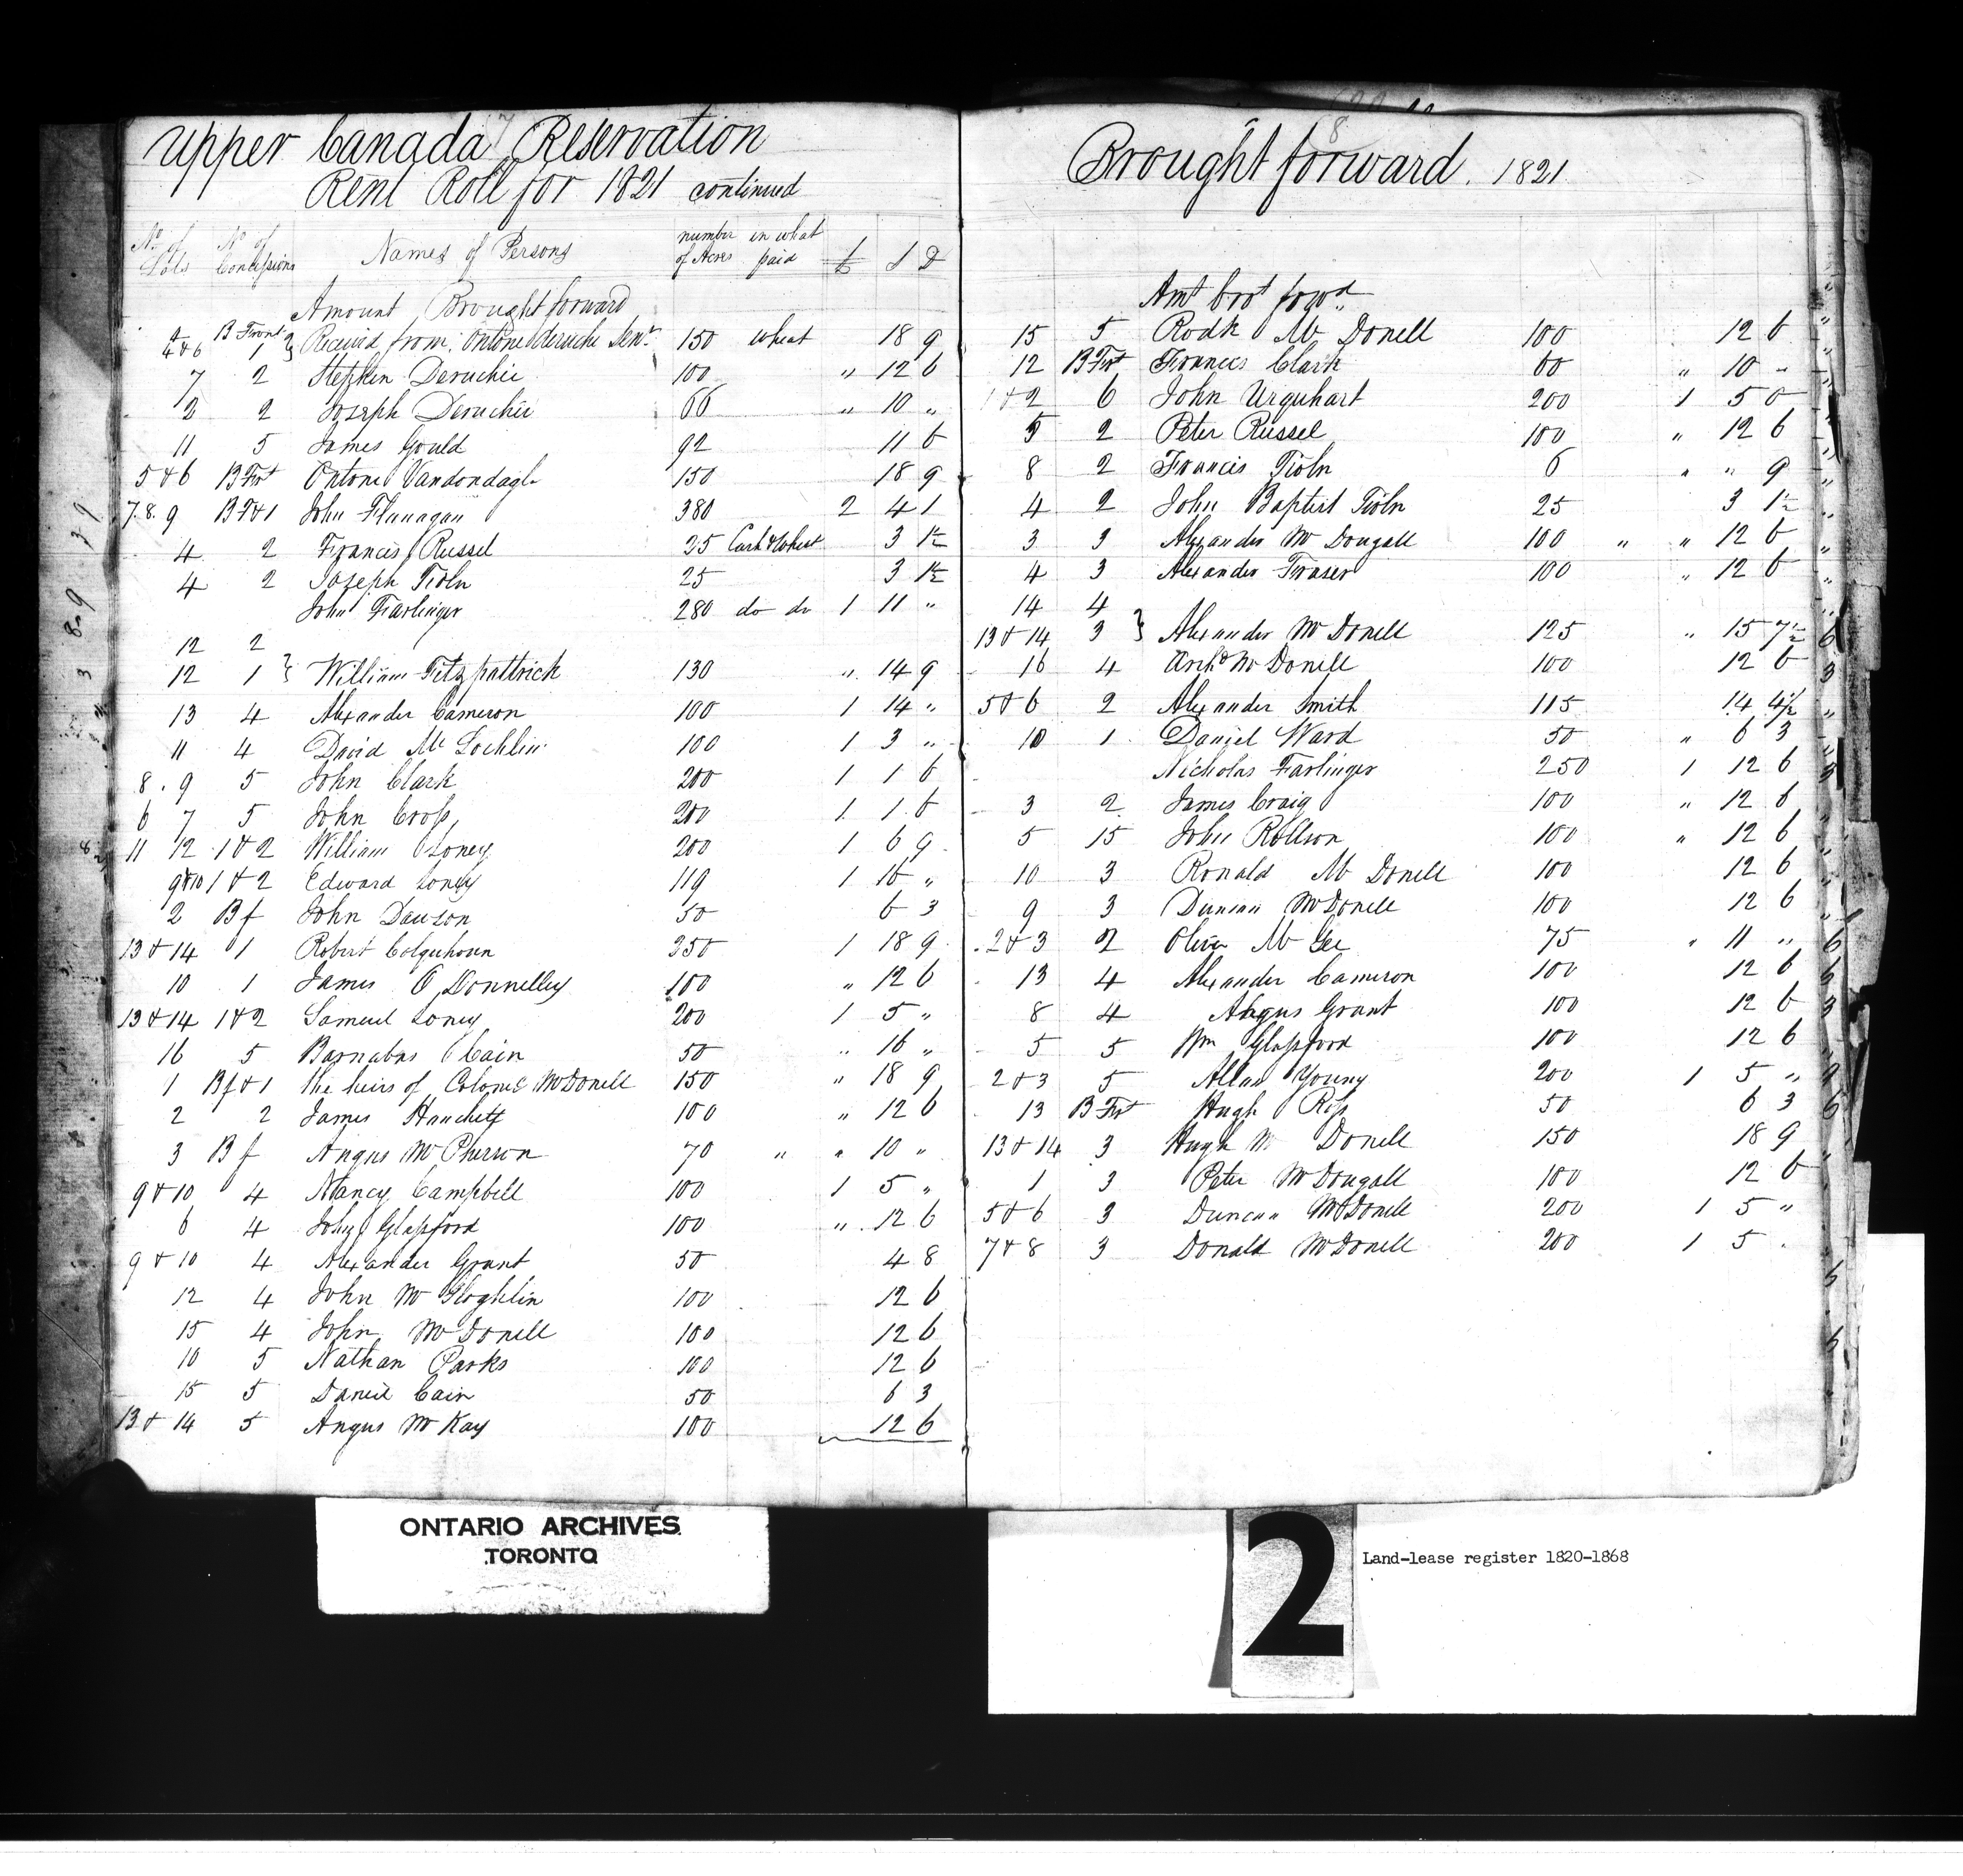 7
Upper Canada Reservation
Rent Roll for 1821 continued
No of Lots No of Concessions Names of Persons number of Acres in what paid £ S D
Amount Brought forward
4 & 6 B Front 1 2 } Received from Ontone Deruche Senr 150 wheat 18 9
7 2 Stephen Deruchie 100 " 12 6
2 2 Joseph Deruchie 66 " 10 "
11 5 James Gould 92 11 6
5 & 6 B Frt Ontone Vandondagl 150 18 9
7. 8. 9 B F & 1 John Flanagan 380 2 4 1
4 2 Francis Russel 25 Cash & Wheat 3 1½
4 2 Joseph Tioln 25 3 1½
John Farlinger 280 do do 1 11 "
12 2
12 1 } William Fitzpattrick 130 " 14 9
13 4 Alexander Cameron 100 1 14 "
11 4 David Mc Lochlin 100 1 3 "
8. 9 5 John Clark 200 1 1 6
6 7 5 John Cross 200 1 1 6
11 12 1 & 2 William Loney 200 1 6 9
9 & 10 1 & 2 Edward Loney 119 1 16 "
2 B f John Dawson 50 6 3
13 & 14 1 Robert Colquhoun 350 1 18 9
10 1 James O Donnelley 100 " 12 6
13 & 14 1 & 2 Samuel Loney 200 1 5 "
16 5 Barnabas Cain 50 " 16 "
1 B f & 1 the heirs of Colonel McDonell 150 " 18 9
2 2 James Hanchett 100 " 12 6
3 B f Angus McPherson 70 " " 10 "
9 & 10 4 Nancy Campbell 100 1 5 "
6 4 John Glassford 100 " 12 6
9 & 10 4 Alexander Grant 50 4 8
12 4 John Mc Gloghlin 100 12 6
15 4 John McDonell 100 12 6
10 5 Nathan Parks 100 12 6
15 5 Daniel Cain 50 6 3
13 & 14 5 Angus McKay 100 12 6
8
Brought forward. 1821
Amt brot forwd
15 5 Rodk Mc Donell 100 12 6
12 B Frt Frances Clark 60 " 10 "
1 & 2 6 John Urquhart 200 1 5 0
5 2 Peter Russel 100 " 12 6
8 2 Francis Tioln 6 " " 9
4 2 John Baptist Tioln 25 3 1½
3 3 Alexander McDougall 100 " " 12 6
4 3 Alexander Fraser 100 " 12 6
14 4
13 & 14 3 } Alexander McDonell 125 " 15 7½
16 4 Archd McDonell 100 12 6
5 & 6 2 Alexander Smith 115 14 4½
10 1 Daniel Ward 50 " 6 3
Nicholas Farlinger 250 1 12 6
3 2 James Craig 100 " 12 6
5 15 John Rollson 100 " 12 6
10 3 Ronald Mc Donell 100 12 6
9 3 Duncan McDonell 100 12 6
2 & 3 2 Oliver Mc Gee 75 " 11 "
13 4 Alexander Cameron 100 12 6
8 4 Angus Grant 100 12 6
5 5 Wm Glassford 100 12 6
2 & 3 5 Allan Young 200 1 5 "
13 B Frt Hugh Ross 50 6 3
13 & 14 3 Hugh Mc Donell 150 18 9
1 3 Peter McDougall 100 12 6
5 & 6 3 Duncan McDonell 200 1 5 "
7 & 8 3 Donald McDonell 200 1 5 "
ONTARIO ARCHIVES
TORONTO
2
Land-lease register 1820-1868